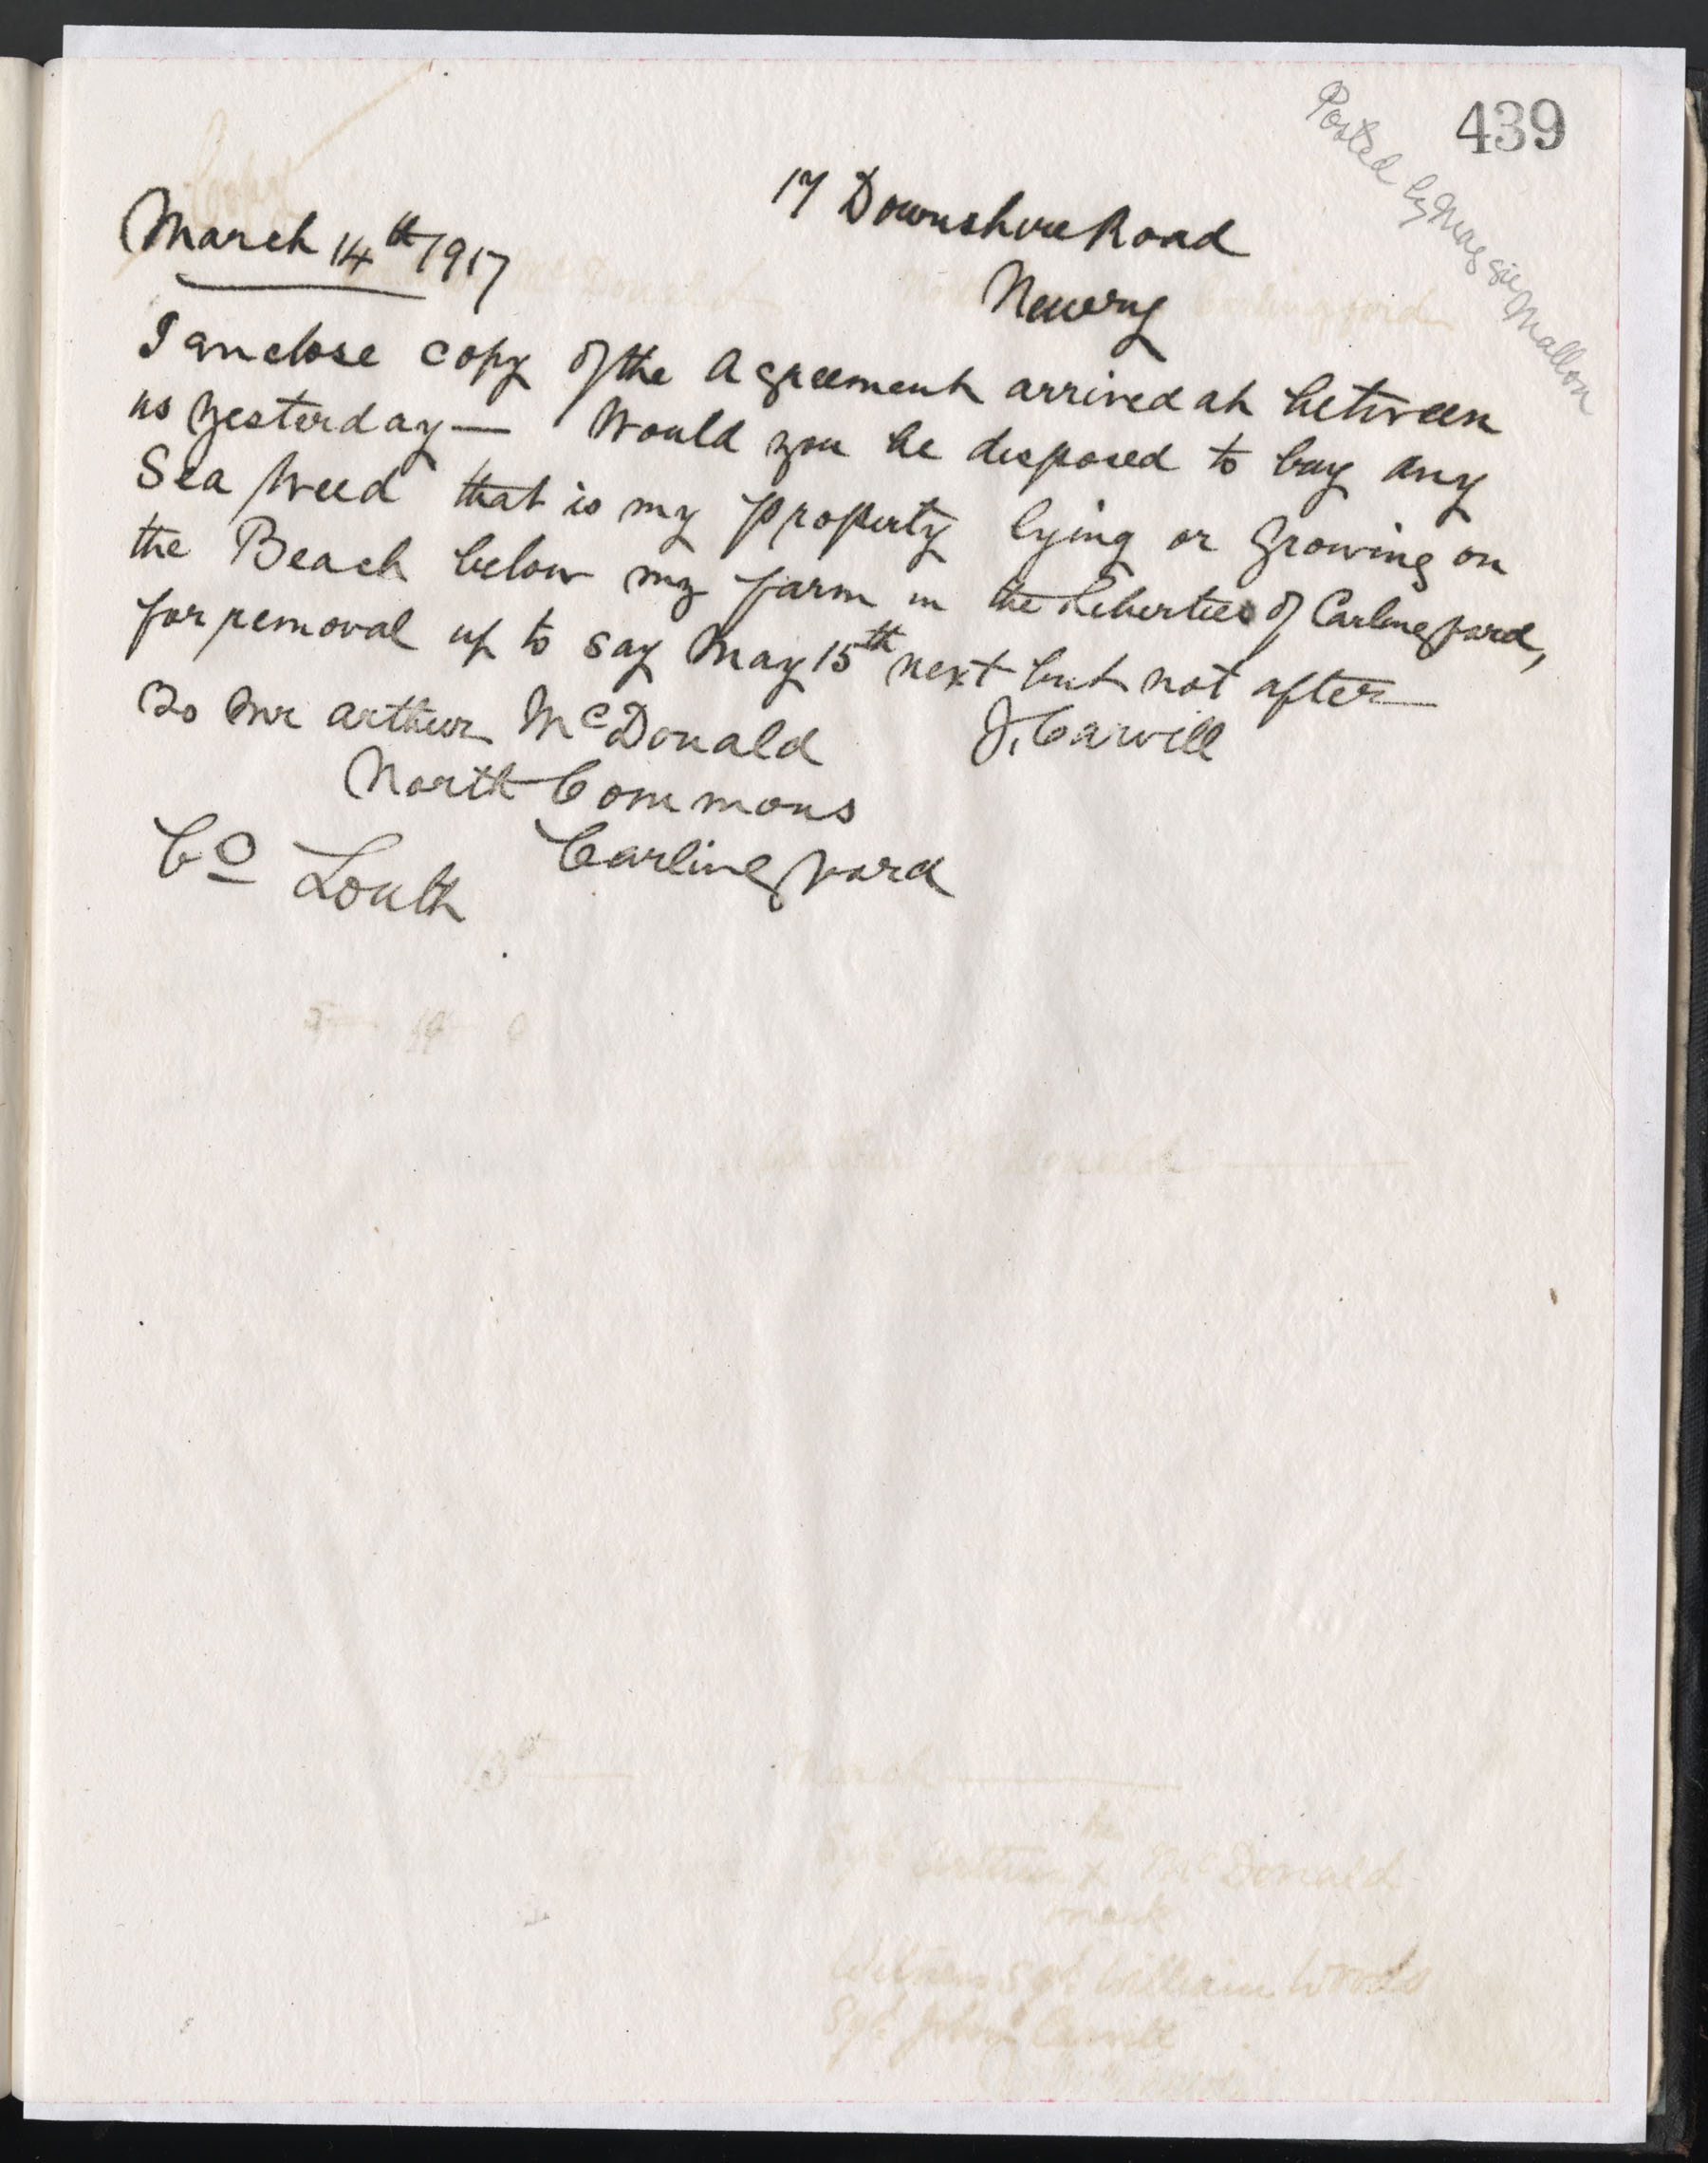 439
Posted by Maggie Mallon
17 Downshire Road
March 14th 1917
Newry
I anclose copy of the Agreement arrived at between
us yesterday — Would you be disposed to buy any
Sea Weed that is my property lying or growing on
the Beach below my farm in the Liberties of Carlingford,
for removal up to say May 15th next but not after —
To Mr Arthur McDonald
J. Carvill
North Commons
Carlingford
Co Louth
13th
March
his
Sgd Arthur x McDonald
mark
Witness Sgd William Woods
Sgd John Carvill